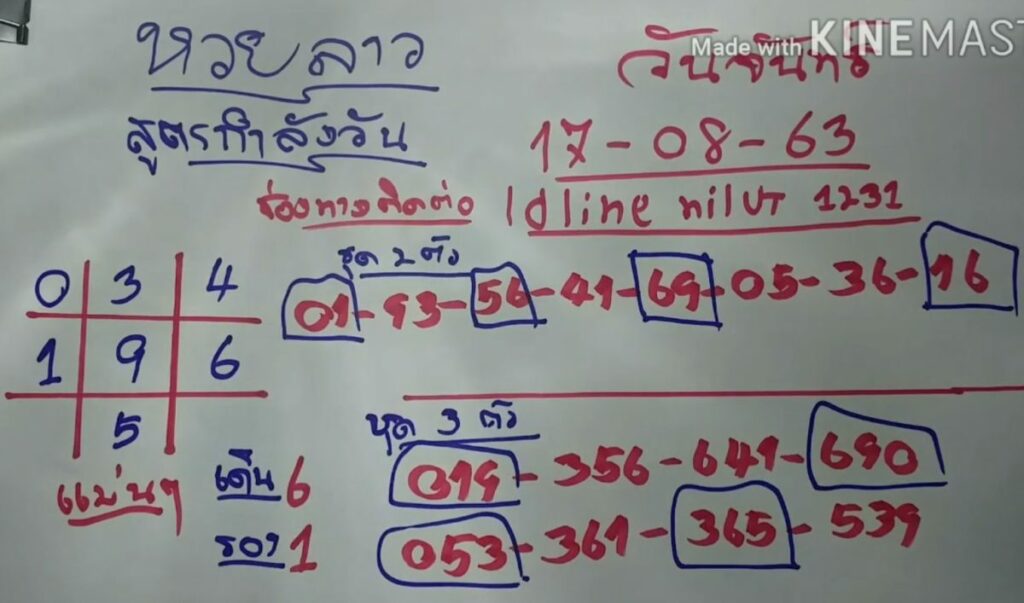 หวยลาว
วันจันทร์
Made with KINEMAS
สูตรกำลังวัน
17-08-63
ช่องทางติดต่อ Id line nilut 1231
ชุด 2 ตัว
01-93-56-41-69-05-36-16
0 3 4
1 9 6
5
ชุด 3 ตัว
019-356-641-690
053-361-365-539
แม่นๆ
เด่น 6
รอง 1